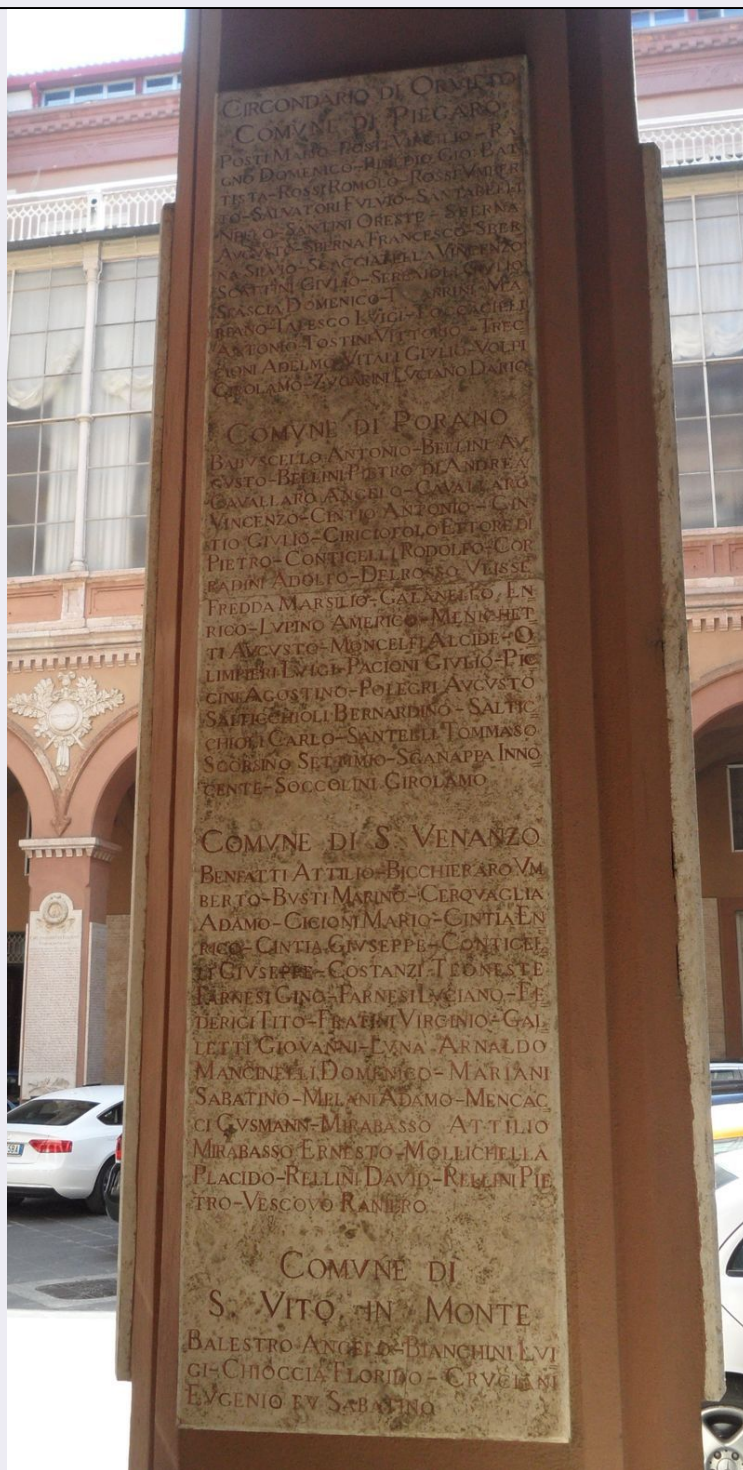 CIRCONDARIO DI ORVIETO
COMVNE DI PIEGARO
POSTI MARIO-POSTI VIRGILIO-RA
GNO DOMENICO- GIO.BAT
TISTA-ROSSI ROMOLO-ROSSI VMBER
TO-SALVATORI FVLVIO-SANTARELLI
NELLO-SANTINI ORESTE-SBERNA
AVGVSTO-SBERNA FRANCESCO-SBER
NA SILVIO-SCACCIATELLA VINCENZO
SCATTINI GIVLIO-SERENIOLI GIVLIO
SFASCIA DOMENICO- MA
RIANO-TALESCO LVIGI-
ANTONIO-TOSTINI VITTORIO-TREC
CIONI ADELMO-VITALI GIVLIO-VOLPI
GIROLAMO-ZVGARINI LVCIANO DARIO
COMVNE DI PORANO
BABVSCELLO ANTONIO-BELLINI AV
GVSTO-BELLINI PIETRO DI ANDREA
CAVALLARO ANGELO-CAVALLARO
VINCENZO-CINTIO ANTONIO-CIN
TIO GIVLIO-CIRICIOFOLO ETTORE DI
PIETRO-CONTICELLI RODOLFO-COR
RADINI ADOLFO-DELROSSO VLISSE
FREDDA MARSILIO-GALANELLO EN
RICO-LVPINO AMERICO-MENICHET
TI AVGVSTO-MONCELFI ALCIDE-O
LIMPIERI LVIGI-PACIONI GIVLIO-PIC
CINE AGOSTINO-POLEGRI AVGVSTO
SALTICCHIOLI BERNARDINO-SALTIC
CHIOLI CARLO-SANTELLI TOMMASO
SCORSINO SETTIMIO-SGANAPPA INNO
CENTE-SOCCOLINI GIROLAMO
COMVNE DI S. VENANZO
BENFATTI ATTILIO-BICCHIERARO VM
BERTO-BVSTI MARINO-CERQVAGLIA
ADAMO-CICIONI MARIO-CINTIA EN
RICO-CINTIA GIVSEPPE-CONTICEL
LI GIVSEPPE-COSTANZI TEONESTE
FARNESI GINO-FARNESI LVCIANO-FE
DERICI TITO-FRATINI VIRGINIO-GAL
LETTI GIOVANNI-LVNA ARNALDO
MANCINELLI DOMENICO-MARIANI
SABATINO-MELANI ADAMO-MENCAC
CI GVSMANN-MIRABASSO ATTILIO
MIRABASSO ERNESTO-MOLLICHELLA
PLACIDO-RELLINI DAVID-RELLINI PIE
TRO-VESCOVO RANIERO
COMVNE DI
S. VITO IN MONTE
BALESTRO ANGELO-BIANCHINI LVI
GI-CHIOCCIA FLORIDO-CRVCIANI
EVGENIO FV SABATINO